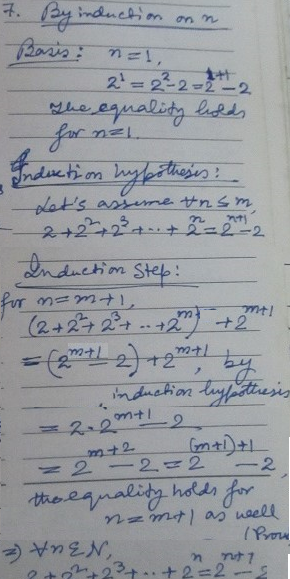 7. By induction on n
Basis: n=1,
2^1 = 2^2-2 = 2^{1+1}-2
The equality holds
for n=1.
Induction hypothesis:
Let's assume ∀n≤m,
2+2^2+2^3+..+2^n=2^{n+1}-2
Induction Step:
for n=m+1,
(2+2^2+2^3+..+2^m) +2^{m+1}
=(2^{m+1}-2)+2^{m+1}, by
induction hypothesis
= 2.2^{m+1}-2
= 2^{m+2}-2=2^{(m+1)+1}-2,
the equality holds for
n=m+1 as well
⇒ ∀n∈N,
2+2^2+2^3+..+2^n=2^{n+1}-2